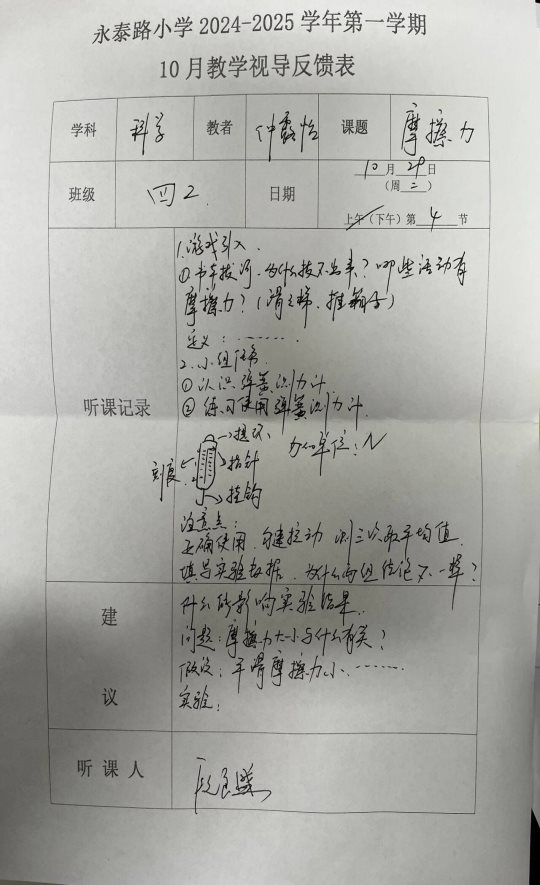 永泰路小学 2024-2025 学年第一学期
10 月教学视导反馈表
学科 科学 教者 仲露怡 课题 摩擦力
班级 四2. 日期 10月29日
(周二)
上午(下午)第4节
听课记录
1.游戏引入.
①中午拔河.为什么拔不出来?哪些活动有
摩擦力?(滑滑梯.推箱子)
定义:…….
2.小组任务
①认识弹簧测力计
②练习使用弹簧测力计.
提环
力的单位:N
刻度 指针
挂钩
注意点:
正确使用.匀速拉动 测三次取平均值
填写实验数据.为什么两组结论不一样?
建议
什么能影响实验结果.
问题:摩擦力大小与什么有关?
假设:平滑摩擦力小.……
实验:
听课人